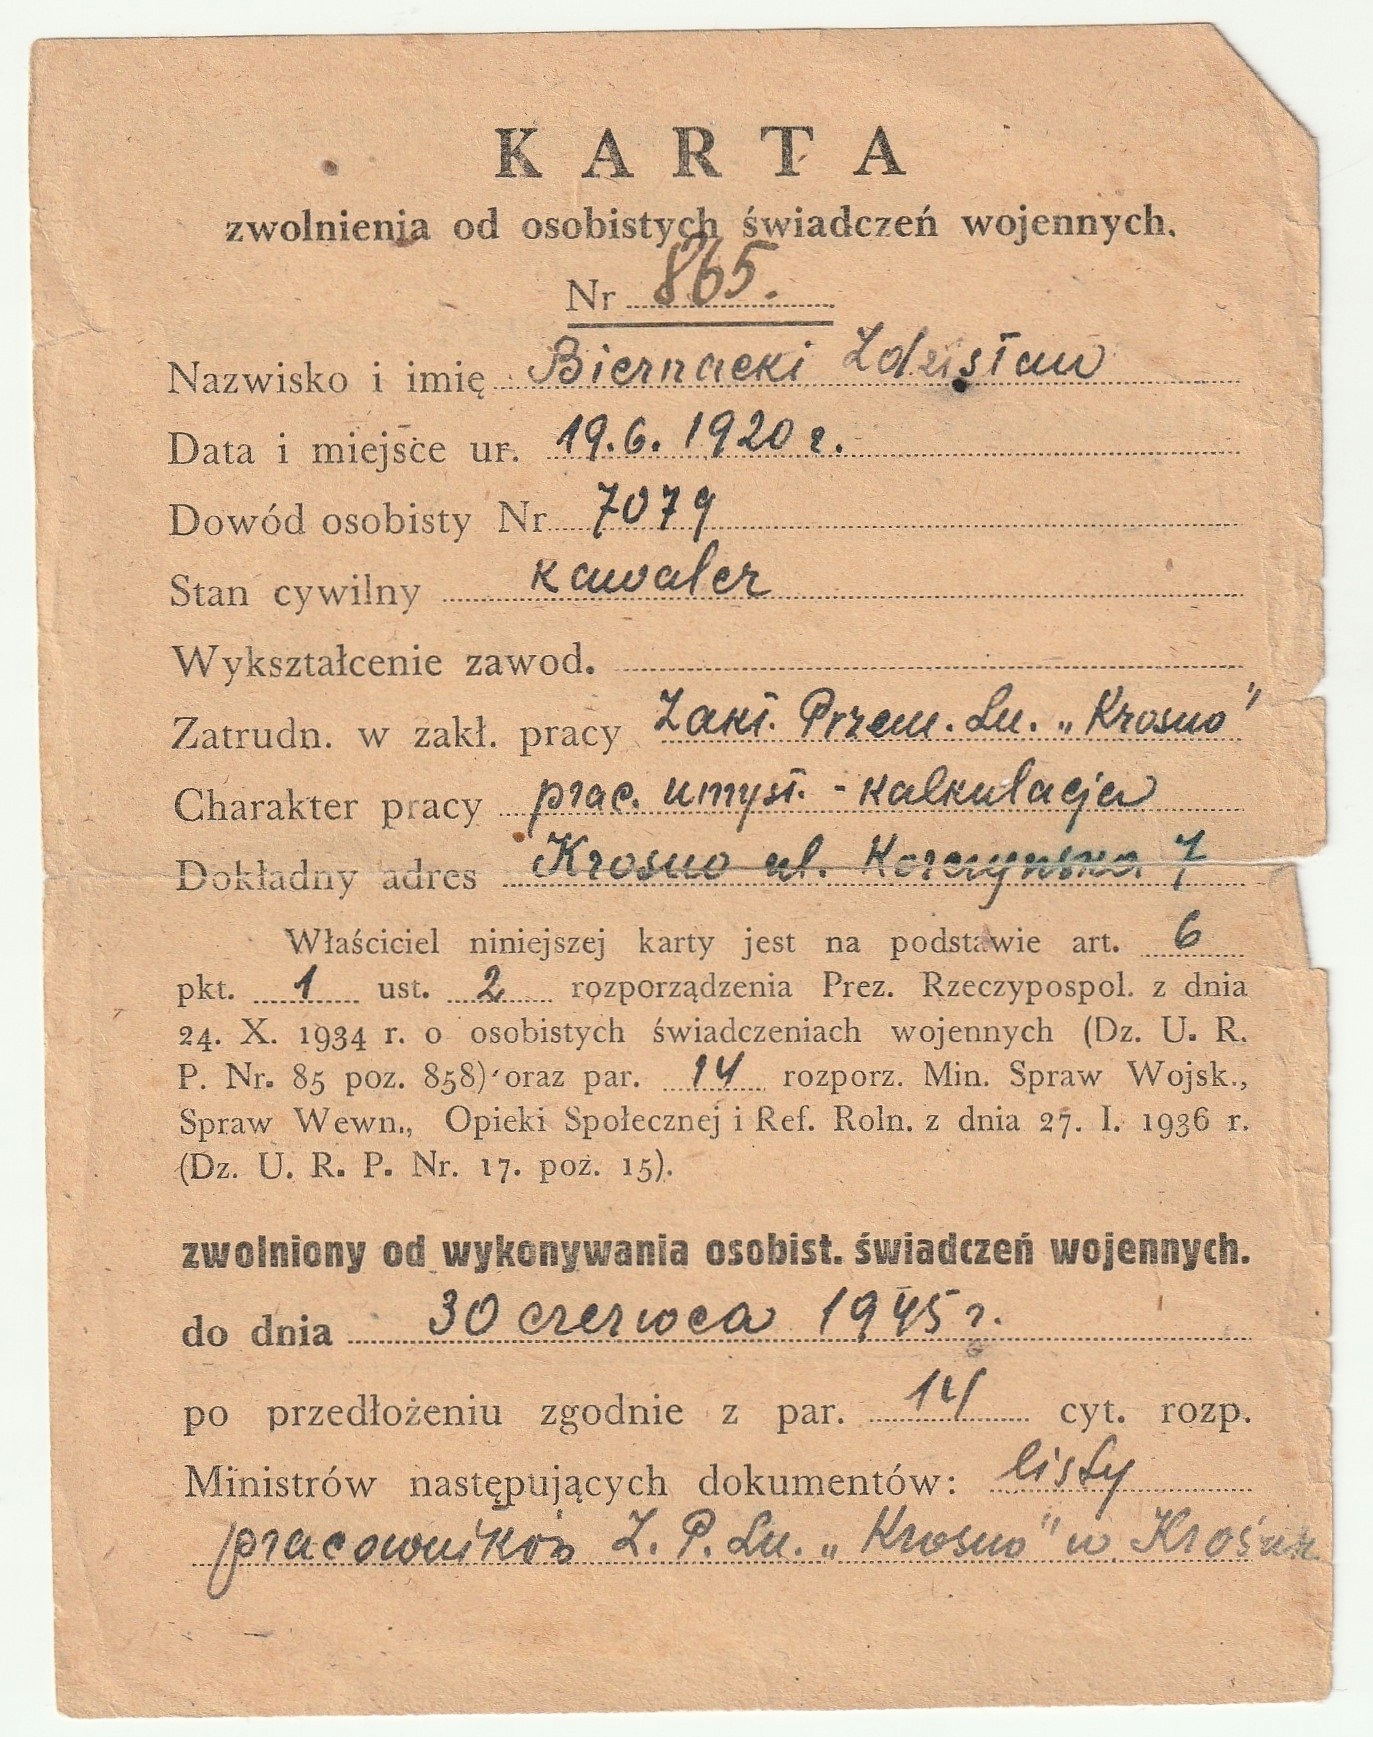 KARTA
zwolnienia od osobistych świadczeń wojennych.
Nr 865.
Nazwisko i imię Biernacki Zdzisław
Data i miejsce ur. 19.6.1920 r.
Dowód osobisty Nr 7079
Stan cywilny kawaler
Wykształcenie zawod.
Zatrudn. w zakł. pracy Zakł. Przem. Ln. „Krosno"
Charakter pracy prac. umysł. - kalkulacja
Dokładny adres Krosno ul. Korczyńska 7
Właściciel niniejszej karty jest na podstawie art. 6
pkt. 1 ust. 2 rozporządzenia Prez. Rzeczypospol. z dnia
24. X. 1934 r. o osobistych świadczeniach wojennych (Dz. U. R.
P. Nr. 85 poz. 858) oraz par. 14 rozporz. Min. Spraw Wojsk.,
Spraw Wewn., Opieki Społecznej i Ref. Roln. z dnia 27. I. 1936 r.
(Dz. U. R. P. Nr. 17. poz. 15).
zwolniony od wykonywania osobist. świadczeń wojennych.
do dnia 30 czerwca 1945 r.
po przedłożeniu zgodnie z par. 14 cyt. rozp.
Ministrów następujących dokumentów: listy
pracowników Z. P. Ln. „Krosno" w Krośnie